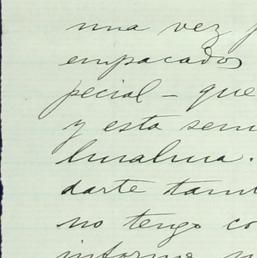 una vez
empacados
pecial - que
y esta sem
darte tam
no tengo co
informe